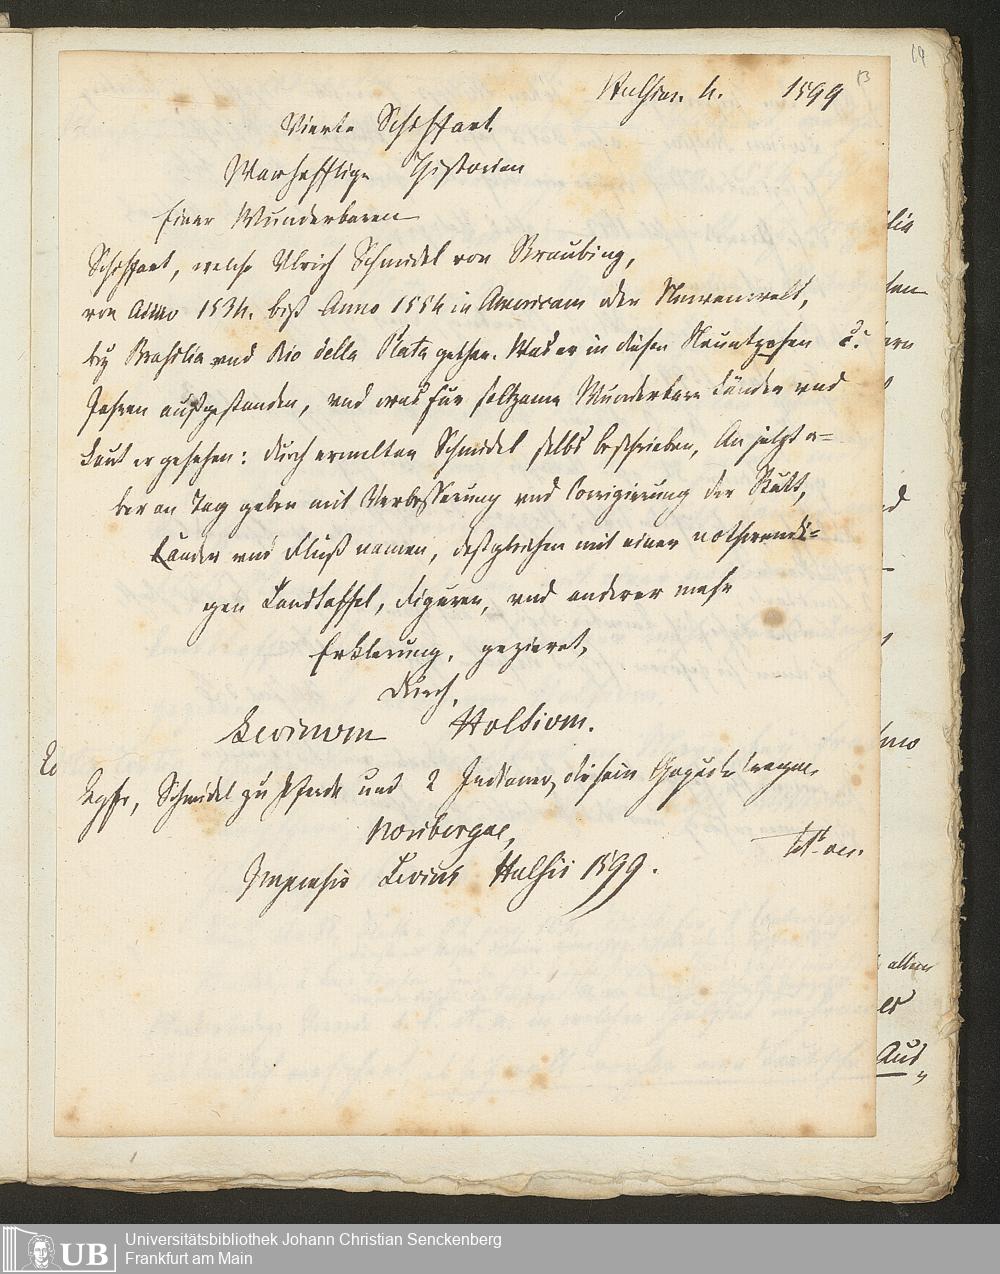 64
13
Hulsius. 4. 1599
Vierte Schiffart.
Warhafftige Historien
Einer Wunderbaren
Schiffart, welche Ulrich Schmidel von Straubing,
von Anno 1534. biß Anno 1554 in Americam oder Neuwenwelt,
bey Brasilia vnd Rio della Plata gethan. Was er in diesen Neuntzehen
Jahren außgestanden, vnd was für seltzame Wunderbare Länder vnd
Leut er gesehen: durch ermelten Schmidel selbs beschrieben, An jetzt a=
ber an Tag geben mit Verbesserung vnd Corrigierung der Stätt,
Länder vnd Flußnamen, deßgleichen mit einer nothwendi=
gen Landtaffel, Figuren, vnd anderer mehr
Erklerung, gezieret,
Durch,
Levinum Hulsium.
Kpfr, Schmidel zu Pferde und 2 Indianer, die sein Gepäck tragen
Noribergae,
Impensis Levini Hulsii 1599.
allem
Aus
UB
Universitätsbibliothek Johann Christian Senckenberg
Frankfurt am Main